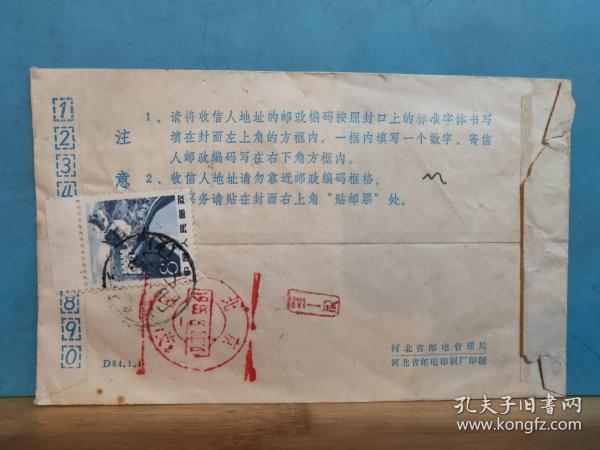 1
2
3
4
8
9
0
注意
1、请将收信人地址的邮政编码按照封口上的标准字体书写
填在封面左上角的方框内，一框内填写一个数字。寄信
人邮政编码写在右下角方框内。
2、收信人地址请勿靠近邮政编码框格。
票务请贴在封面右上角“贴邮票”处。
中国人民邮政
8
北京
河北省邮电管理局
河北省邮电印刷厂印制
D84.1.
孔夫子旧书网
www.kongfz.com